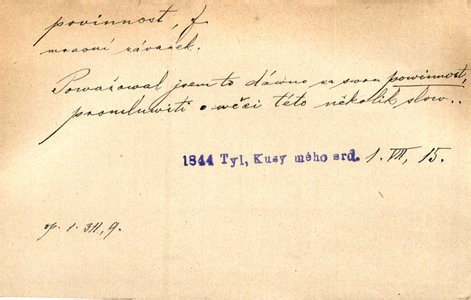 povinnost, f
mravní závazek.
Považowal jsem to dáwno za swou powinnost,
promluwiti o wěci této několik slow..
1844 Tyl, Kusy mého srd. 1. VII, 15.